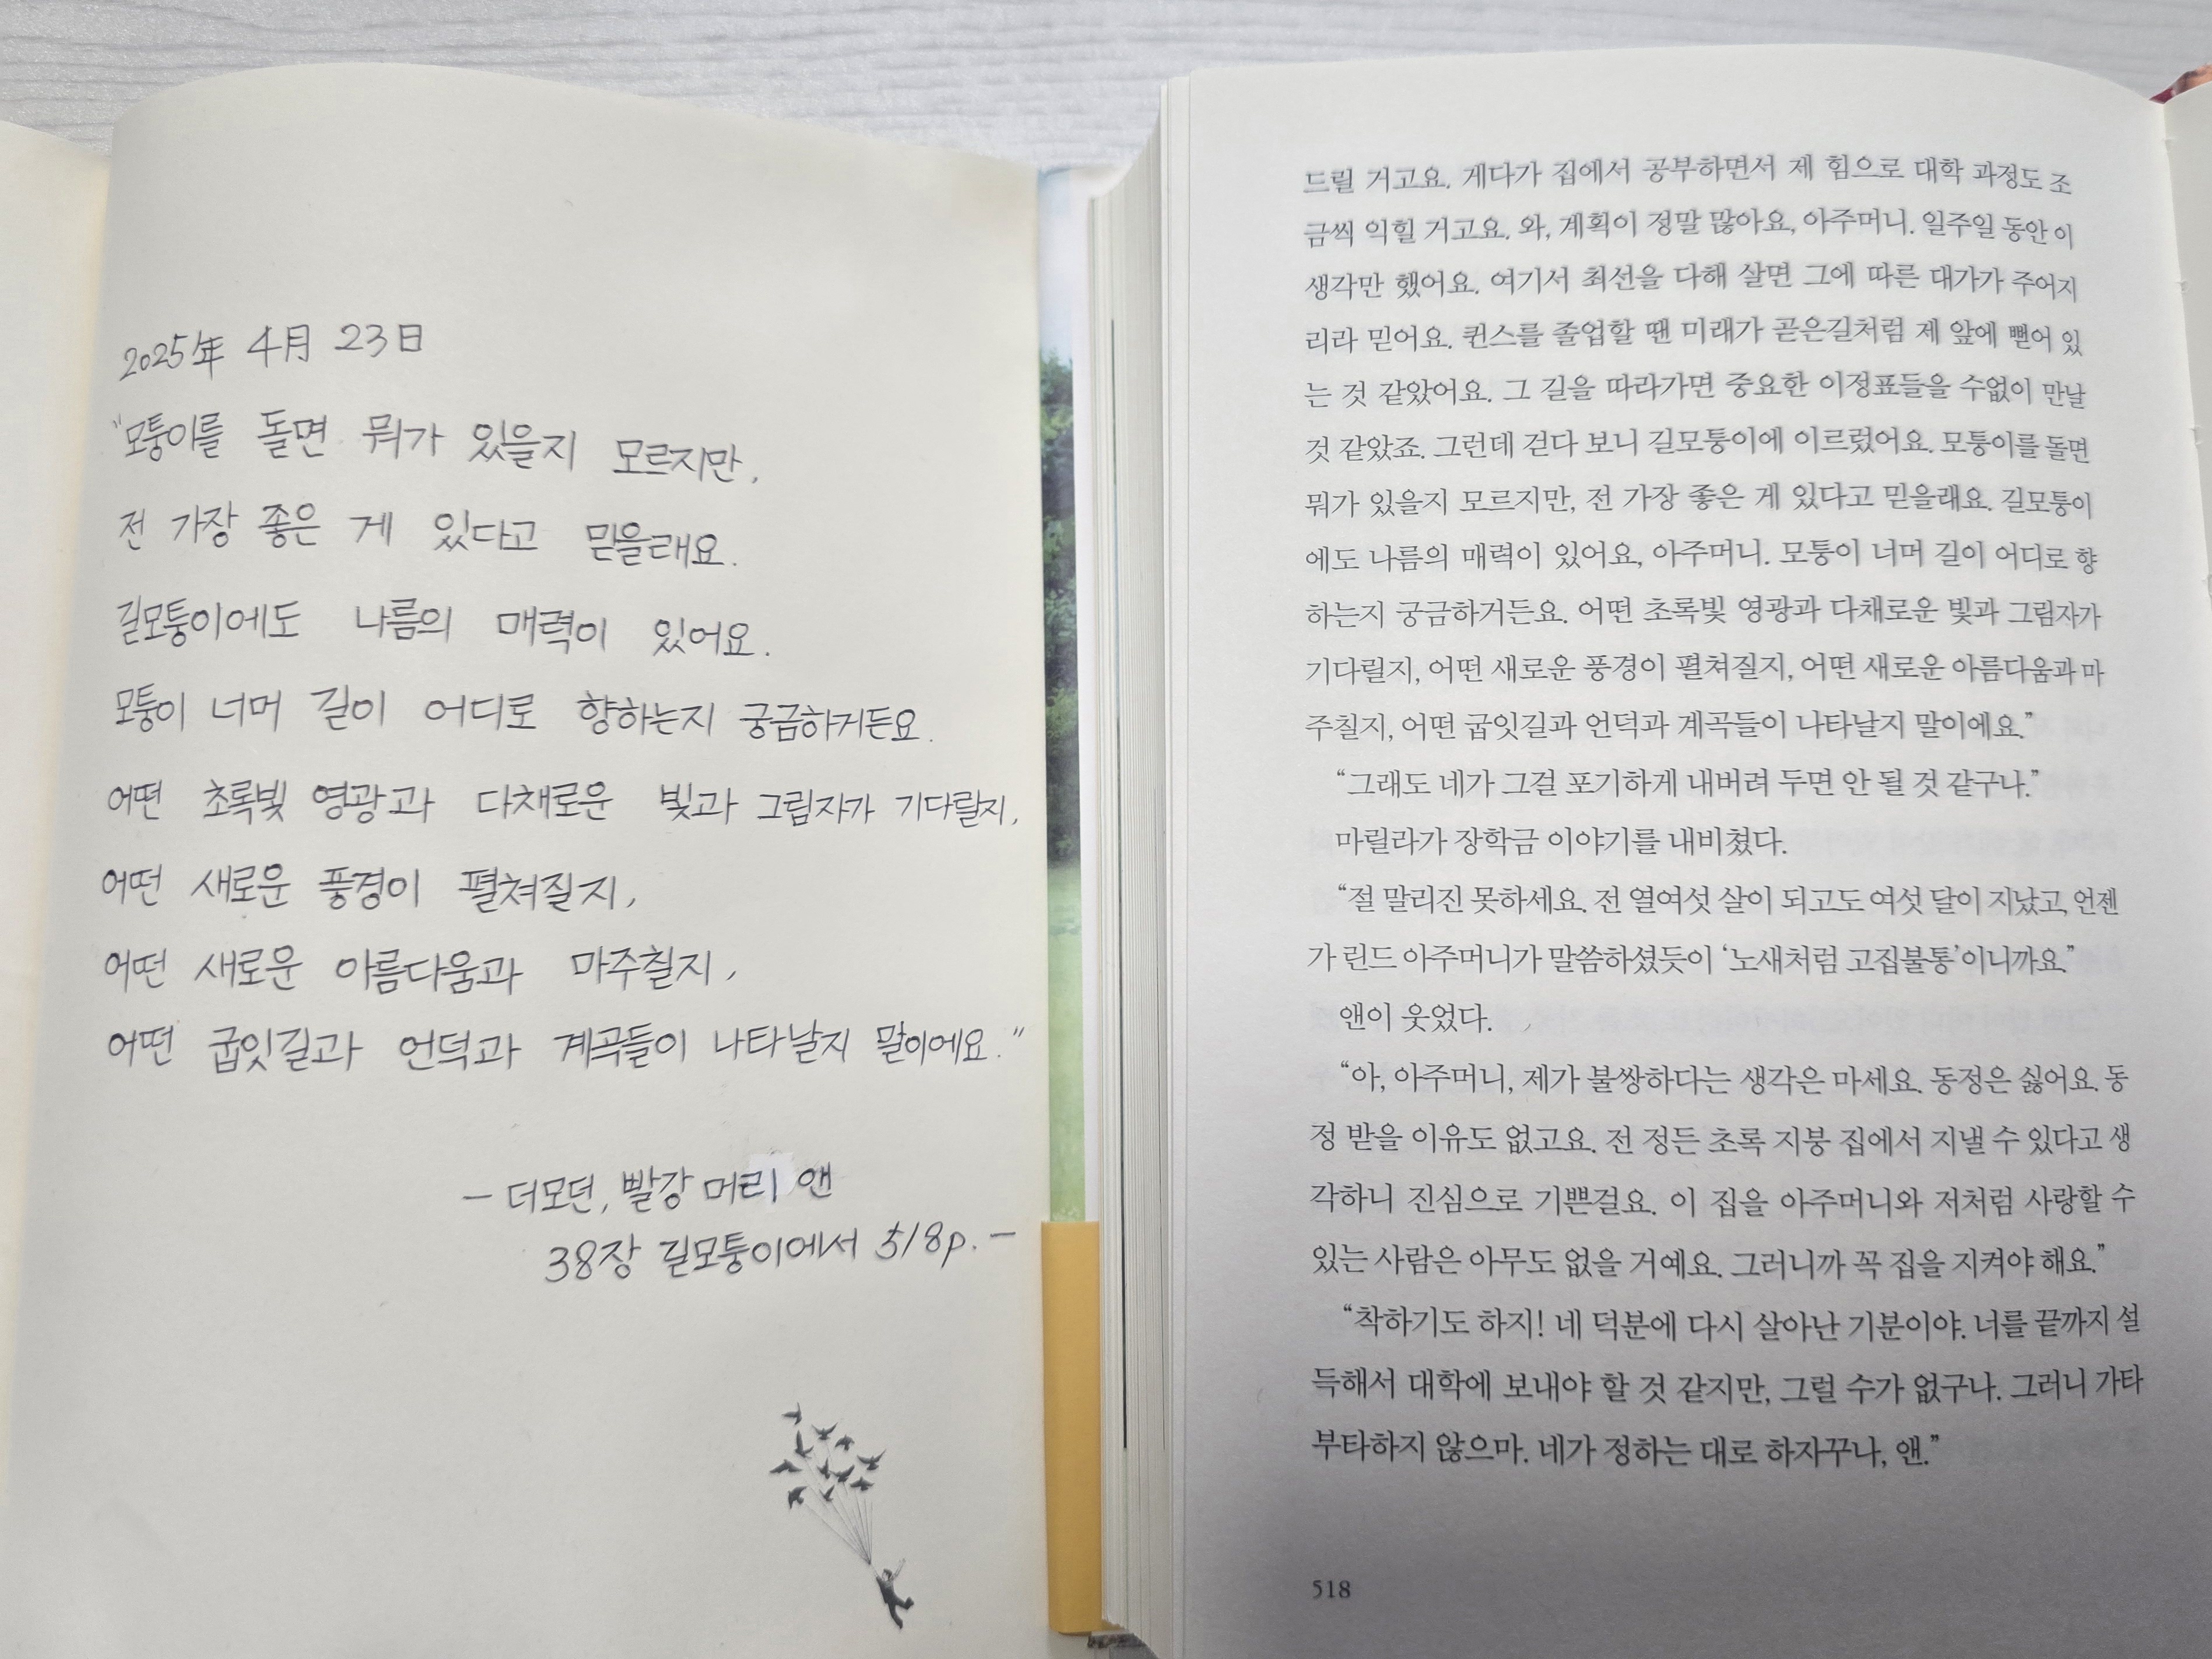 2025年 4月 23日
"모퉁이를 돌면 뭐가 있을지 모르지만,
전 가장 좋은 게 있다고 믿을래요.
길모퉁이에도 나름의 매력이 있어요.
모퉁이 너머 길이 어디로 향하는지 궁금하거든요.
어떤 초록빛 영광과 다채로운 빛과 그림자가 기다릴지,
어떤 새로운 풍경이 펼쳐질지,
어떤 새로운 아름다움과 마주칠지,
어떤 굽잇길과 언덕과 계곡들이 나타날지 말이에요."
- 더모던, 빨강 머리 앤
38장 길모퉁이에서 518p. -
드릴 거고요. 게다가 집에서 공부하면서 제 힘으로 대학 과정도 조
금씩 익힐 거고요. 와, 계획이 정말 많아요, 아주머니. 일주일 동안 이
생각만 했어요. 여기서 최선을 다해 살면 그에 따른 대가가 주어지
리라 믿어요. 퀸스를 졸업할 땐 미래가 곧은길처럼 제 앞에 뻗어 있
는 것 같았어요. 그 길을 따라가면 중요한 이정표들을 수없이 만날
것 같았죠. 그런데 걷다 보니 길모퉁이에 이르렀어요. 모퉁이를 돌면
뭐가 있을지 모르지만, 전 가장 좋은 게 있다고 믿을래요. 길모퉁이
에도 나름의 매력이 있어요, 아주머니. 모퉁이 너머 길이 어디로 향
하는지 궁금하거든요. 어떤 초록빛 영광과 다채로운 빛과 그림자가
기다릴지, 어떤 새로운 풍경이 펼쳐질지, 어떤 새로운 아름다움과 마
주칠지, 어떤 굽잇길과 언덕과 계곡들이 나타날지 말이에요."
"그래도 네가 그걸 포기하게 내버려 두면 안 될 것 같구나."
마릴라가 장학금 이야기를 내비쳤다.
"절 말리진 못하세요. 전 열여섯 살이 되고도 여섯 달이 지났고, 언젠
가 린드 아주머니가 말씀하셨듯이 '노새처럼 고집불통'이니까요."
앤이 웃었다.
"아, 아주머니, 제가 불쌍하다는 생각은 마세요. 동정은 싫어요. 동
정 받을 이유도 없고요. 전 정든 초록 지붕 집에서 지낼 수 있다고 생
각하니 진심으로 기쁜걸요. 이 집을 아주머니와 저처럼 사랑할 수
있는 사람은 아무도 없을 거예요. 그러니까 꼭 집을 지켜야 해요."
"착하기도 하지! 네 덕분에 다시 살아난 기분이야. 너를 끝까지 설
득해서 대학에 보내야 할 것 같지만, 그럴 수가 없구나. 그러니 가타
부타하지 않으마. 네가 정하는 대로 하자꾸나, 앤."
518